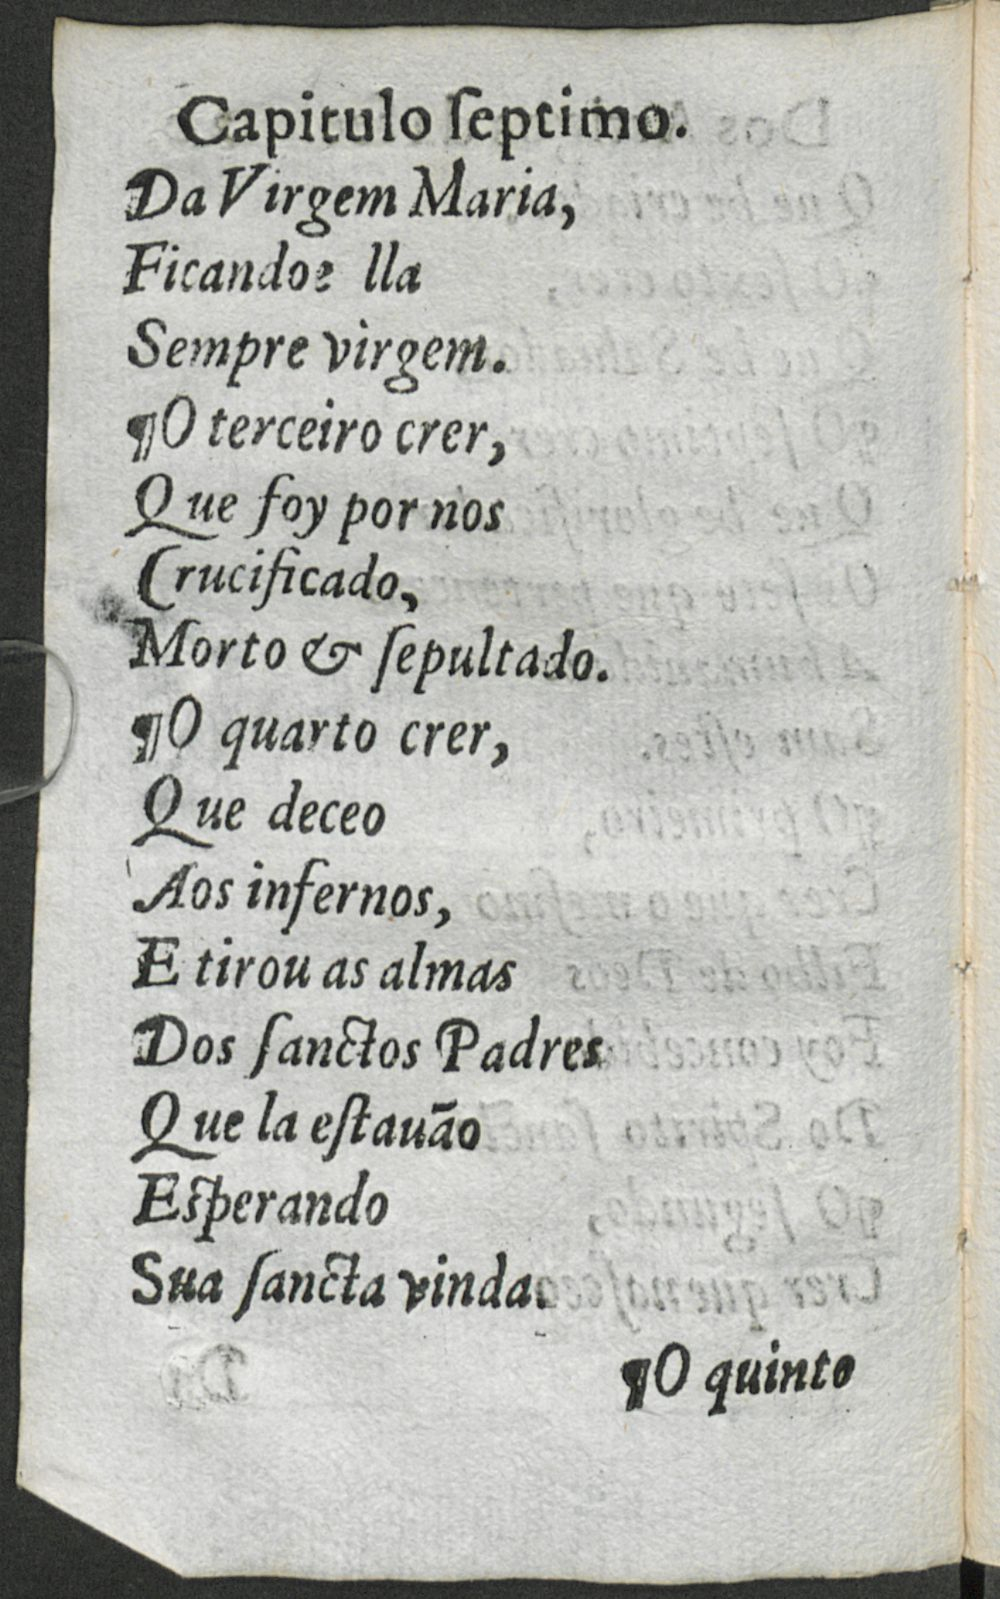 Capitulo ſeptimo.
Da Virgem Maria,
Ficandoe lla
Sempre virgem.
¶O terceiro crer,
Que foy por nos
Crucificado,
Morto & ſepultado.
¶O quarto crer,
Que deceo
Aos infernos,
E tirou as almas
Dos ſanctos Padres
Que la eſtauão
Eſperando
Sua ſancta vinda.
¶O quinto